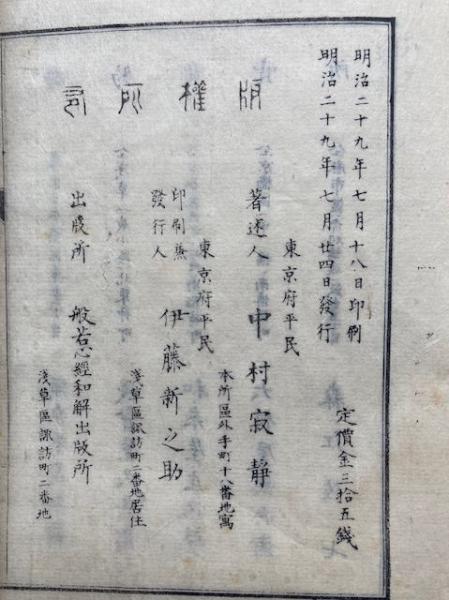 明治二十九年七月十八日印刷
明治二十九年七月廿四日發行
定價金三拾五錢
版權所有
東京府平民
著述人 中村寂靜
本所區外手町十八番地寓
東京府平民
印刷兼
發行人
伊藤新之助
淺草區諏訪町二番地居住
出版所 般若心經和解出版所
淺草區諏訪町二番地